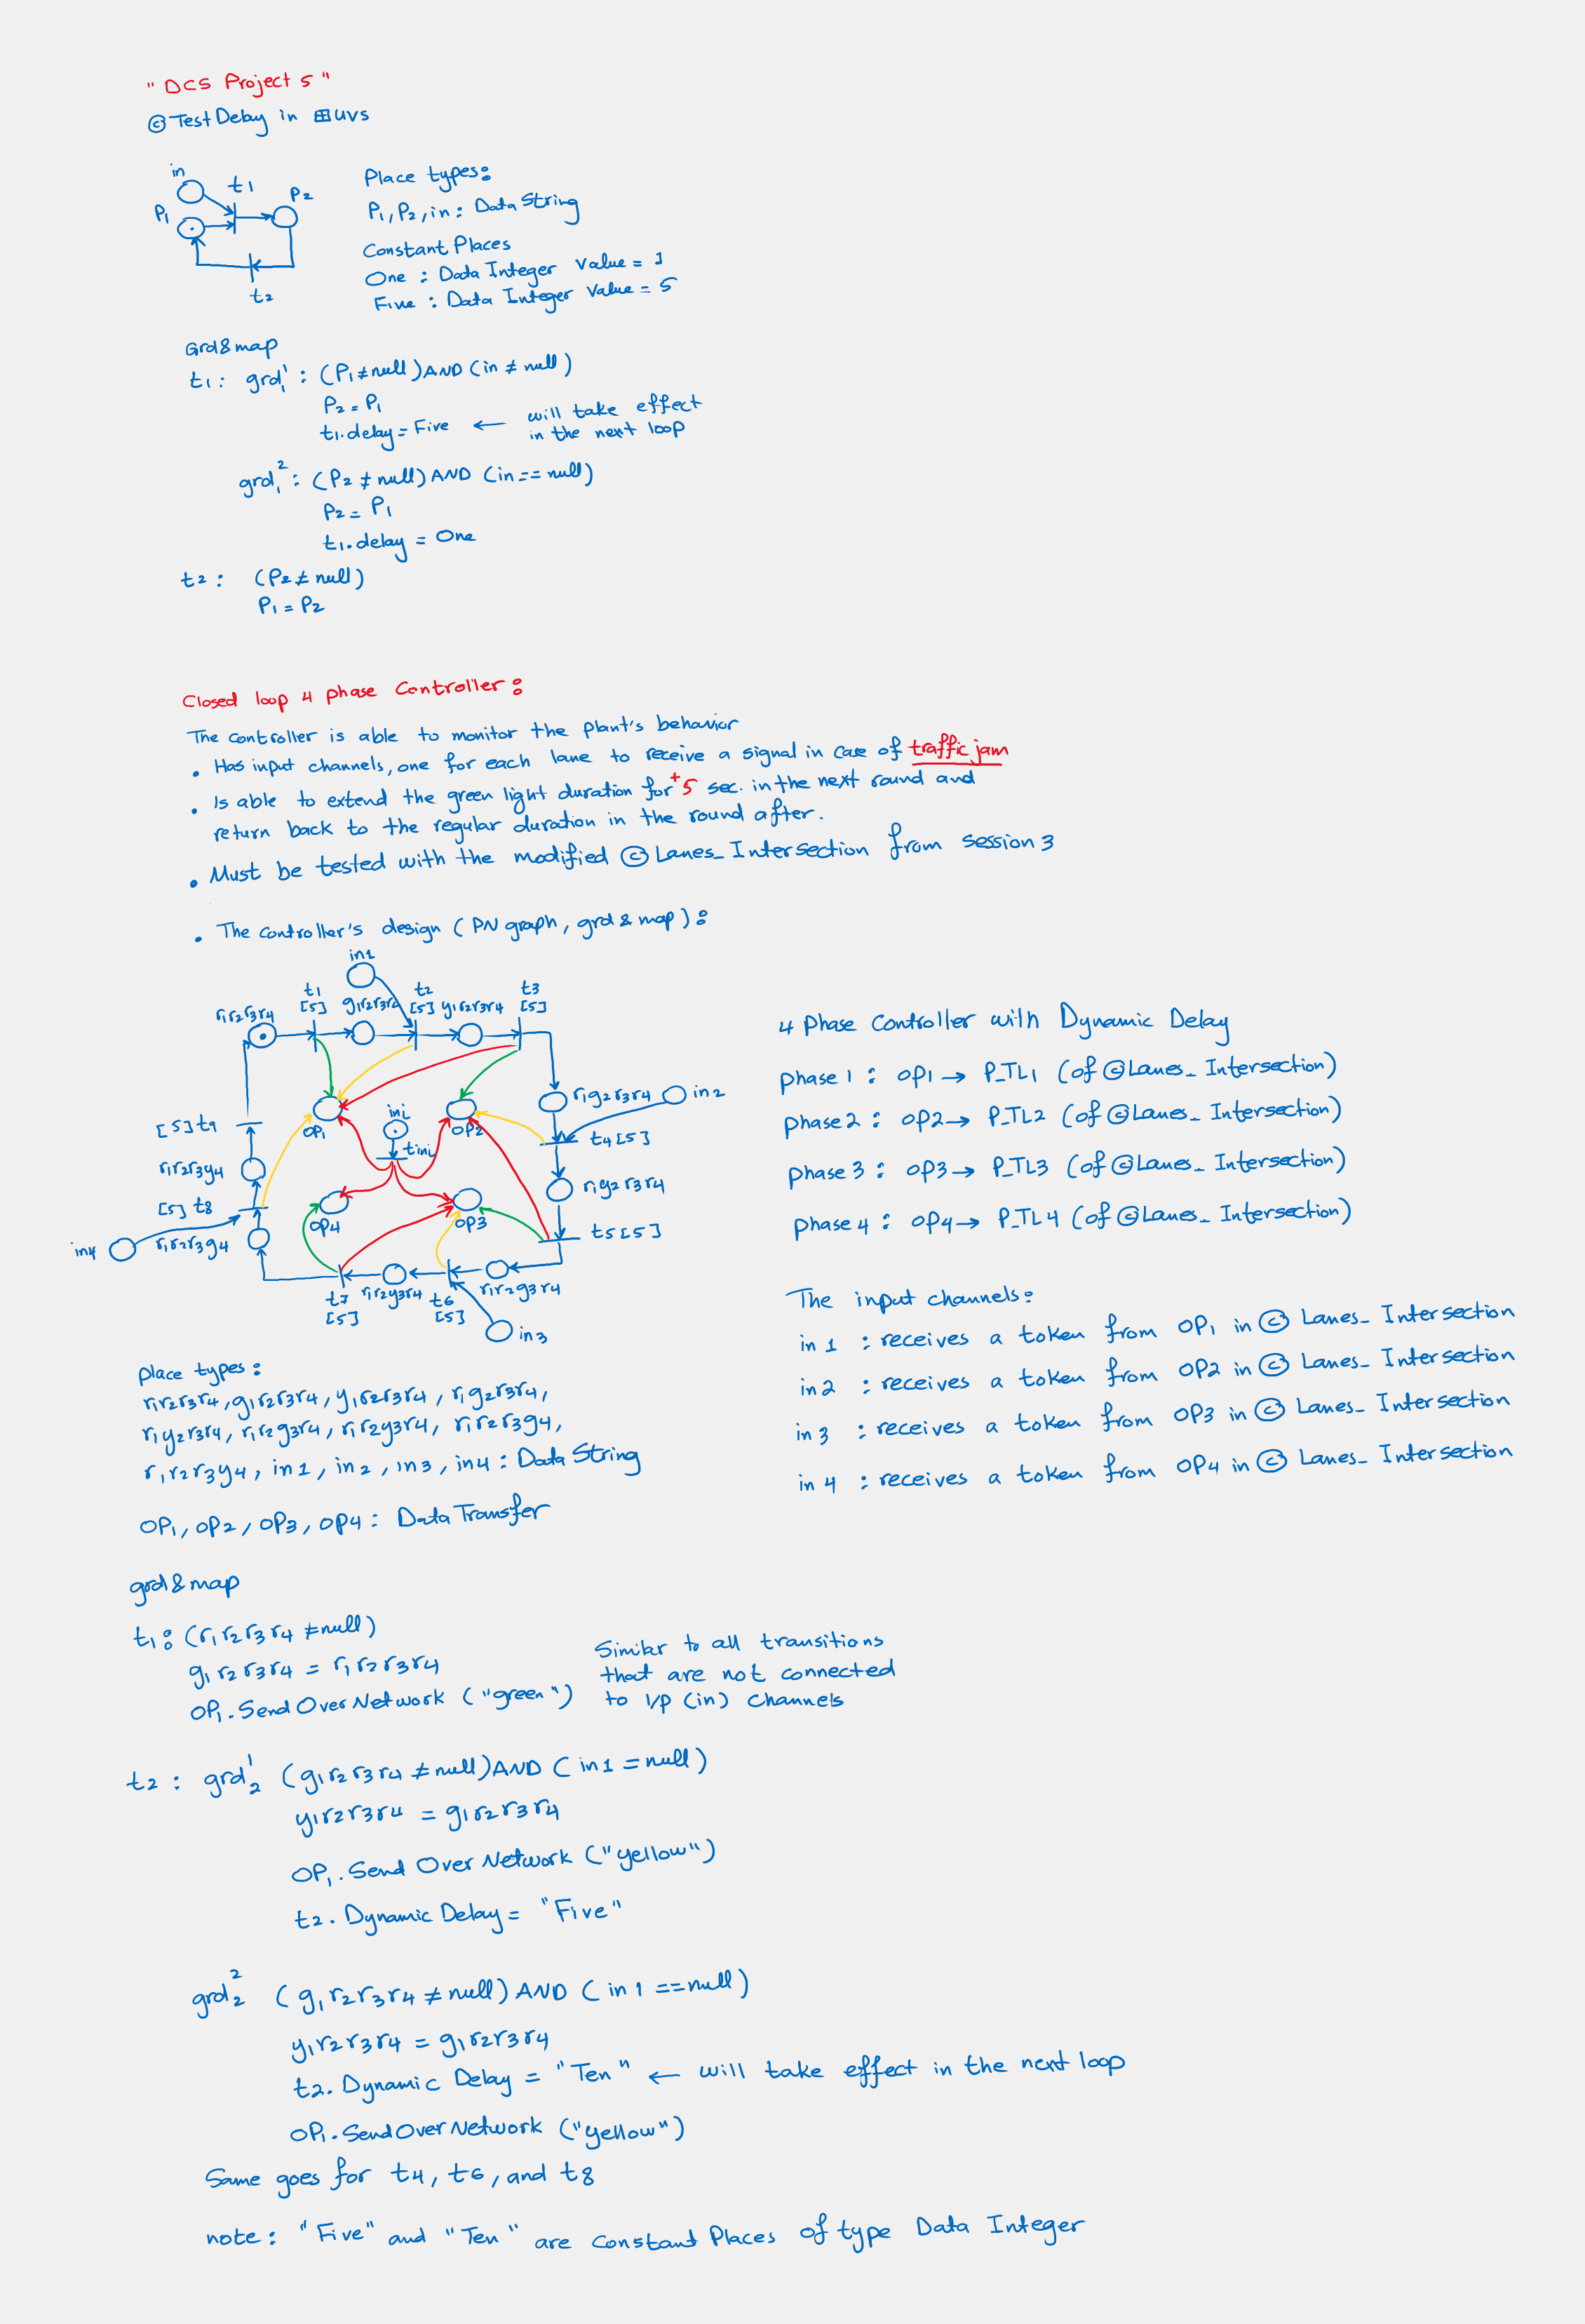 " DCS Project 5 "
© Test Delay in ⊞ UVS
in
t1
P2
P1
t2
Place types:
P1, P2, in : Data String
Constant Places
One : Data Integer Value = 1
Five : Data Integer Value = 5
Grd&map
t1: grd1^1 : (P1 ≠ null) AND (in ≠ null)
P2 = P1
t1.delay = Five ← will take effect
in the next loop
grd1^2 : (P2 ≠ null) AND (in == null)
P2 = P1
t1.delay = One
t2 : (P2 ≠ null)
P1 = P2
Closed loop 4 phase Controller:
The controller is able to monitor the plant's behavior
• Has input channels, one for each lane to receive a signal in case of traffic jam
• Is able to extend the green light duration for +5 sec. in the next round and
return back to the regular duration in the round after.
• Must be tested with the modified © Lanes_Intersection from session 3
• The controller's design (PN graph, grd & map):
in1
r1r2r3r4
t1
[5]
g1r2r3r4
t2
[5]
y1r2r3r4
t3
[5]
r1g2r3r4
in2
t4[5]
r1y2r3r4
t5[5]
r1r2g3r4
t6
[5]
in3
r1r2y3r4
t7
[5]
r1r2r3g4
in4
[5] t8
r1r2r3y4
[5] t9
OP1
ini
tini
OP2
OP4
OP3
4 Phase Controller with Dynamic Delay
Phase 1 : OP1 → P_TL1 (of © Lanes_Intersection)
Phase 2 : OP2 → P_TL2 (of © Lanes_Intersection)
Phase 3 : OP3 → P_TL3 (of © Lanes_Intersection)
Phase 4 : OP4 → P_TL4 (of © Lanes_Intersection)
The input channels:
in 1 : receives a token from OP1 in © Lanes_Intersection
in 2 : receives a token from OP2 in © Lanes_Intersection
in 3 : receives a token from OP3 in © Lanes_Intersection
in 4 : receives a token from OP4 in © Lanes_Intersection
Place types:
r1r2r3r4, g1r2r3r4, y1r2r3r4, r1g2r3r4,
r1y2r3r4, r1r2g3r4, r1r2y3r4, r1r2r3g4,
r1r2r3y4, in1, in2, in3, in4 : Data String
OP1, OP2, OP3, OP4 : Data Transfer
grd&map
t1: (r1r2r3r4 ≠ null)
g1r2r3r4 = r1r2r3r4
OP1.SendOverNetwork ("green")
Similar to all transitions
that are not connected
to I/p (in) channels
t2 : grd2^1 (g1r2r3r4 ≠ null) AND (in1 = null)
y1r2r3r4 = g1r2r3r4
OP1.Send Over Network ("yellow")
t2.Dynamic Delay = "Five"
grd2^2 (g1r2r3r4 ≠ null) AND (in1 == null)
y1r2r3r4 = g1r2r3r4
t2.Dynamic Delay = "Ten" ← will take effect in the next loop
OP1.SendOverNetwork ("yellow")
Same goes for t4, t6, and t8
note: "Five" and "Ten" are constant Places of type Data Integer